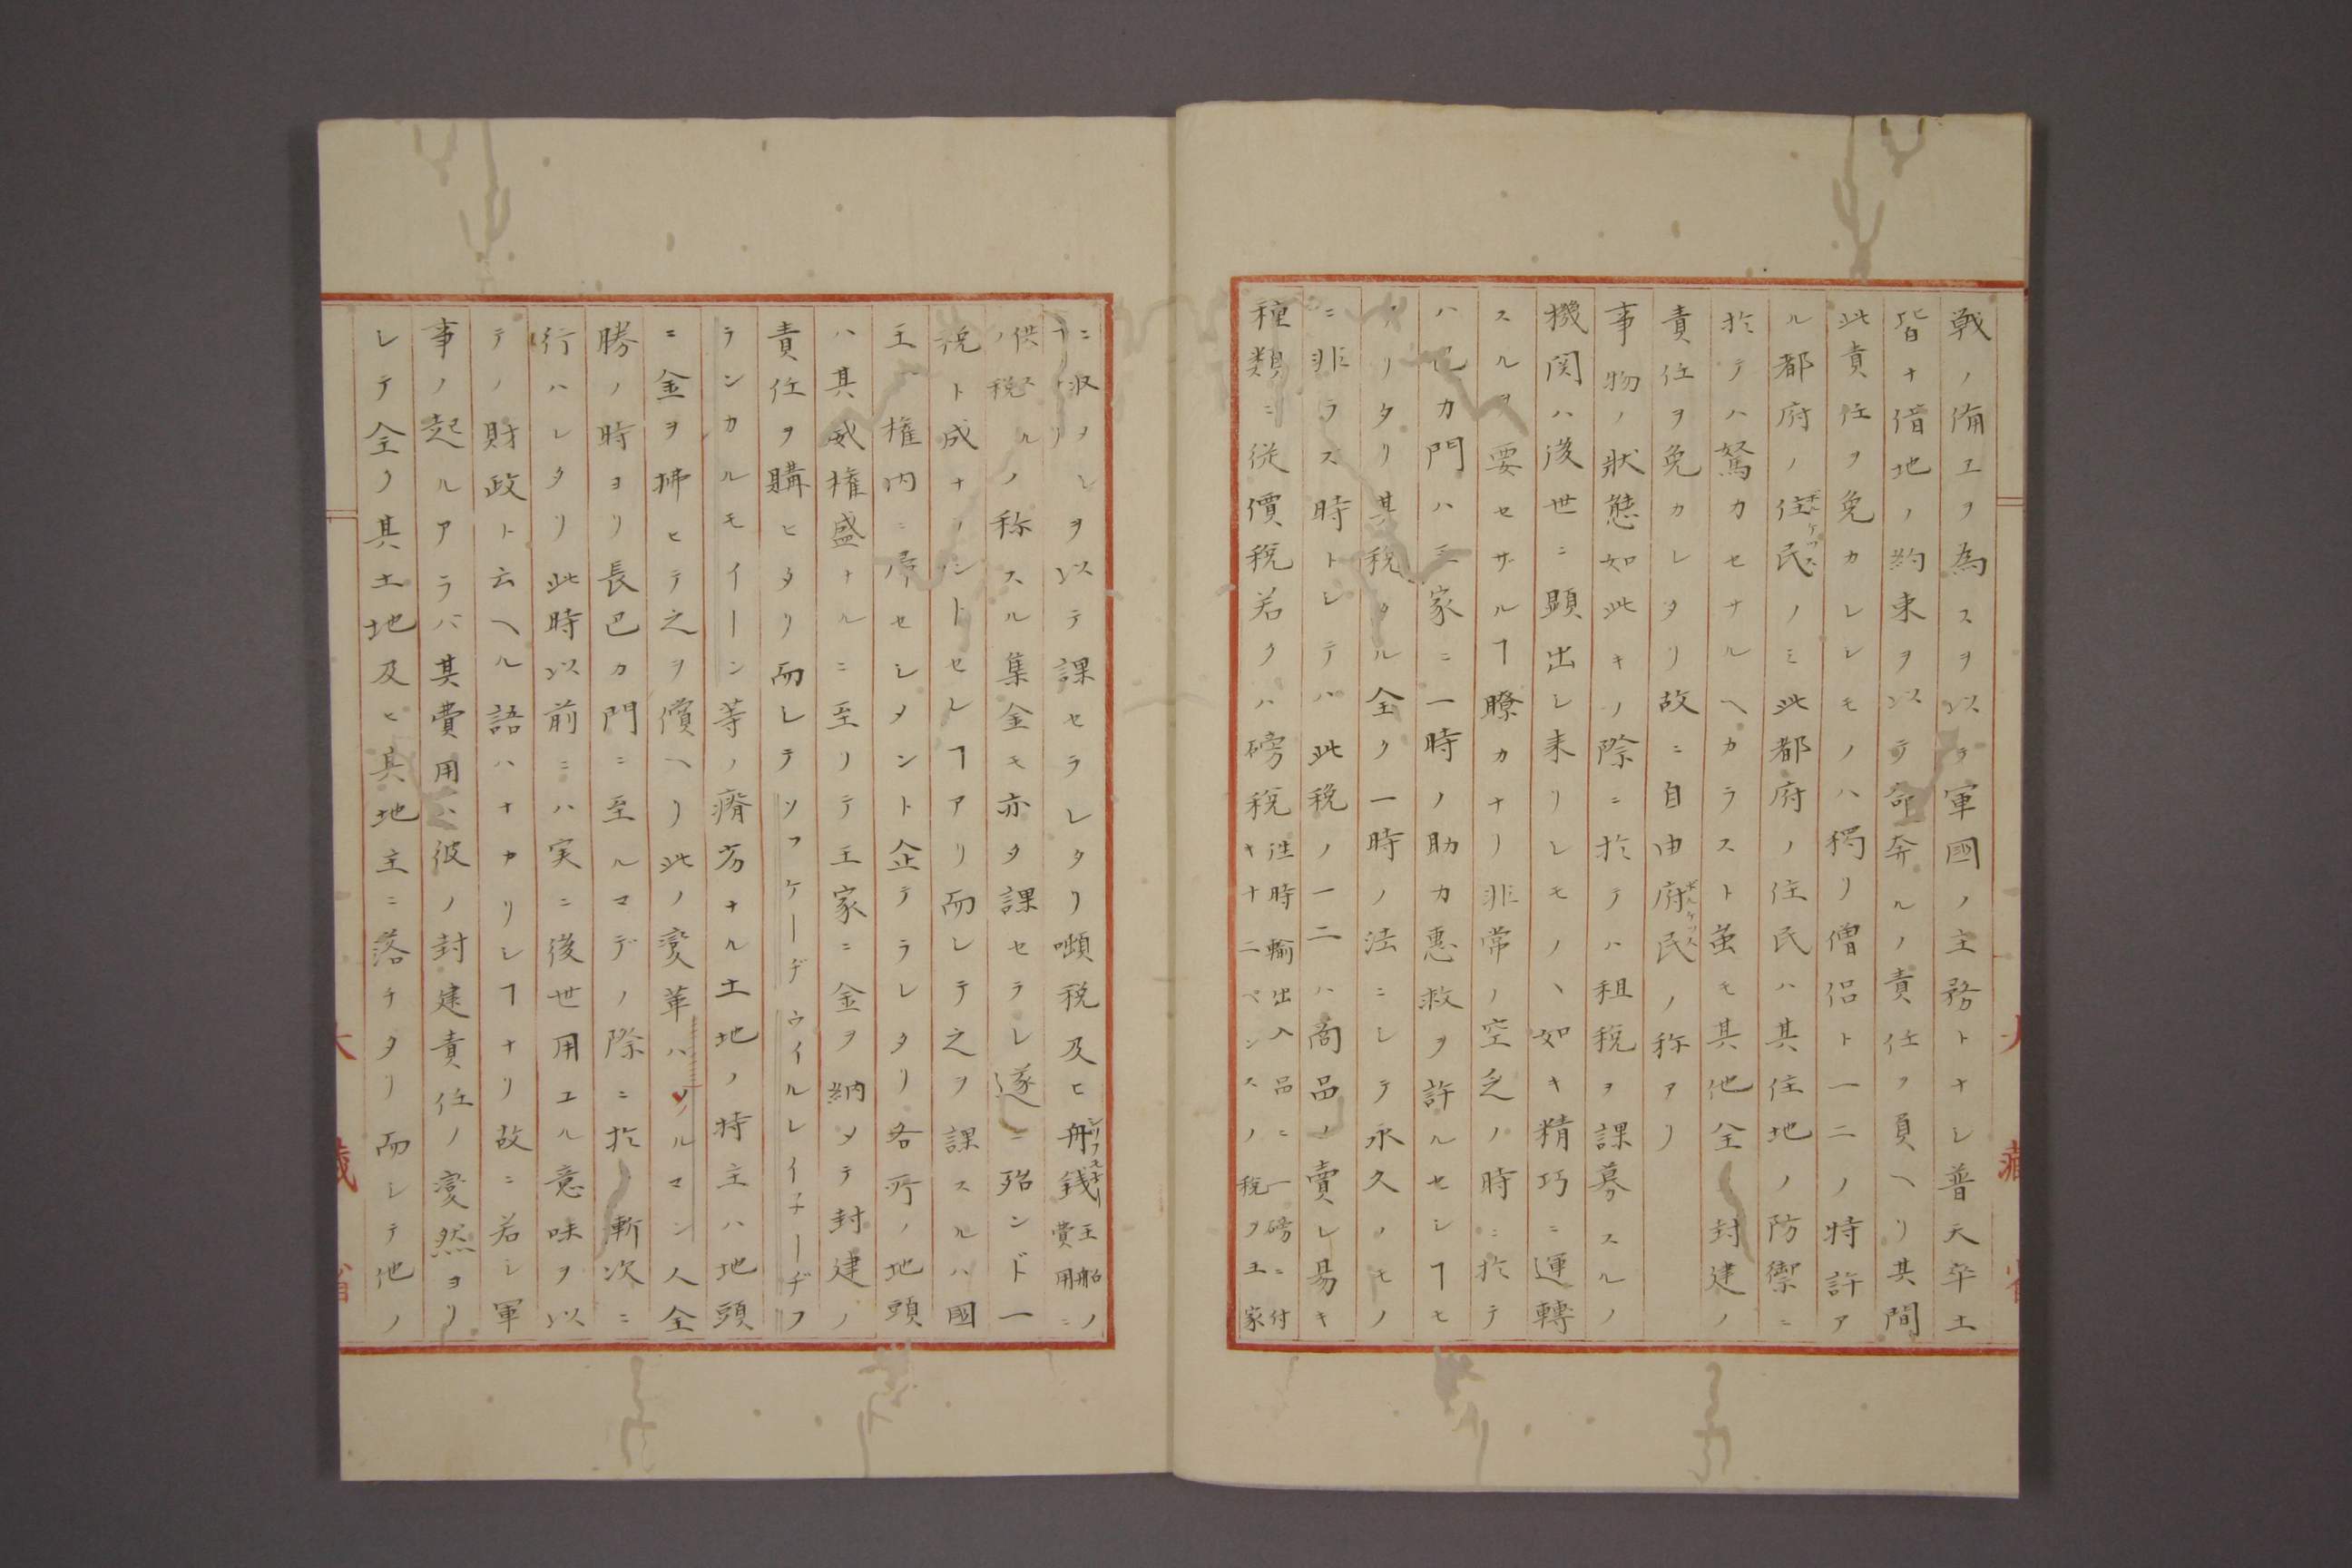 戦ノ備ヱヲ為スヲ以テ軍國ノ主務トナシ普天率土
皆ナ借地ノ約束ヲ以テ命奔ルノ責任ヲ負ヘリ其間
此責任ヲ免カレシモノハ獨リ僧侶ト一二ノ特許ア
ル都府ノ住民ノミ此都府ノ住民ハ其住地ノ防禦ニ
於テハ驚カセナルヘカラスト虽モ其他全ノ封建ノ
責任ヲ免カレタリ故ニ自由府民ノ称アリ
事物ノ狀態如此キノ際ニ於テハ租税ヲ課募スルノ
機関ハ後世ニ顕出シ来リシモノヽ如キ精巧ニ運轉
スルヲ要セザルヿ瞭カナリ非常ノ空乏ノ時ニ於テ
ハ已カ門ハ王家ニ一時ノ助力惠救ヲ許ルセシヿモ
アリタリ其税タル全ク一時ノ法ニシテ永久ノモノ
ニ非ラス時トシテハ此税ノ一二ハ商品ノ賣レ易キ
種類ニ従價税若クハ磅税往時輸出入品ニ一磅ニ付
キ十二ペンスノ税ヲ王家
ニ収ヲシヲ以テ課セラレタリ噸税及ヒ船銭王船ノ
費用ニ
供スルノ税ノ称スル集金モ亦タ課セラレ遂ニ殆ンド一
税ト成ナランドセレヿアリ而シテ之ヲ課スルハ國
王ノ権内ニ属セシメント企テラレタリ各所ノ地頭
ハ其威権盛ナルニ至リテ王家ニ金ヲ納メテ封建ノ
責任ヲ購ヒタリ而レテソフケーデウイルレイナーヂフ
ランカルモイーン等ノ瘠劣ナル土地ノ持主ハ地頭
ニ金ヲ拂ヒテ之ヲ償ヘリ此ノ変革ハノルマン人全
勝ノ時ヨリ長已カ門ニ至ルマデノ際ニ於テ斬次ニ
行ハレタリ此時以前ニハ実ニ後世用ユル意味ヲ以
テノ財政ト云ヘル語ハナカリシヿナリ故ニ若シ軍
事ノ起ルアラバ其費用ハ彼ノ封建責任ノ変然ヨリ
レテ全ク其土地及ヒ其地主ニ落チタリ而シテ他ノ
大藏省